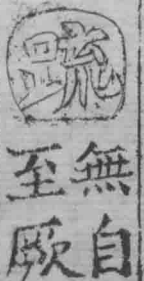 疏
無自
至厥